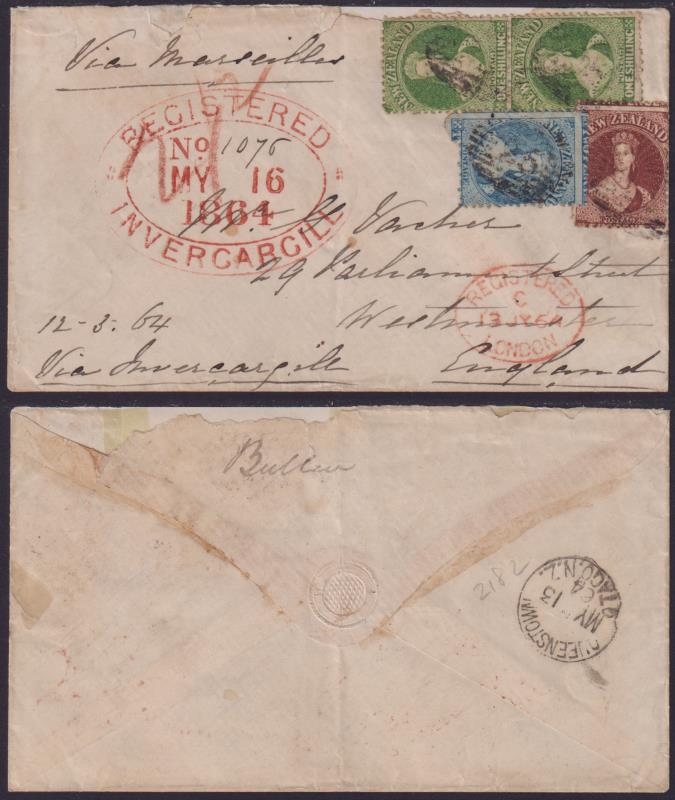 Via Marseilles
NEW ZEALAND
ONE SHILLING
NEW ZEALAND
ONE SHILLING
NEW ZEALAND
POSTAGE
REGISTERED
No 1076
MY 16
1864
INVERCARGILL
Mr H Vacher
29 Parliament Street
Westminster
England
REGISTERED
C
13 JY 64
LONDON
12-3.64
Via Invercargill
Buller
2182
QUEENSTOWN
MY 13
64
OTAGO.N.Z.